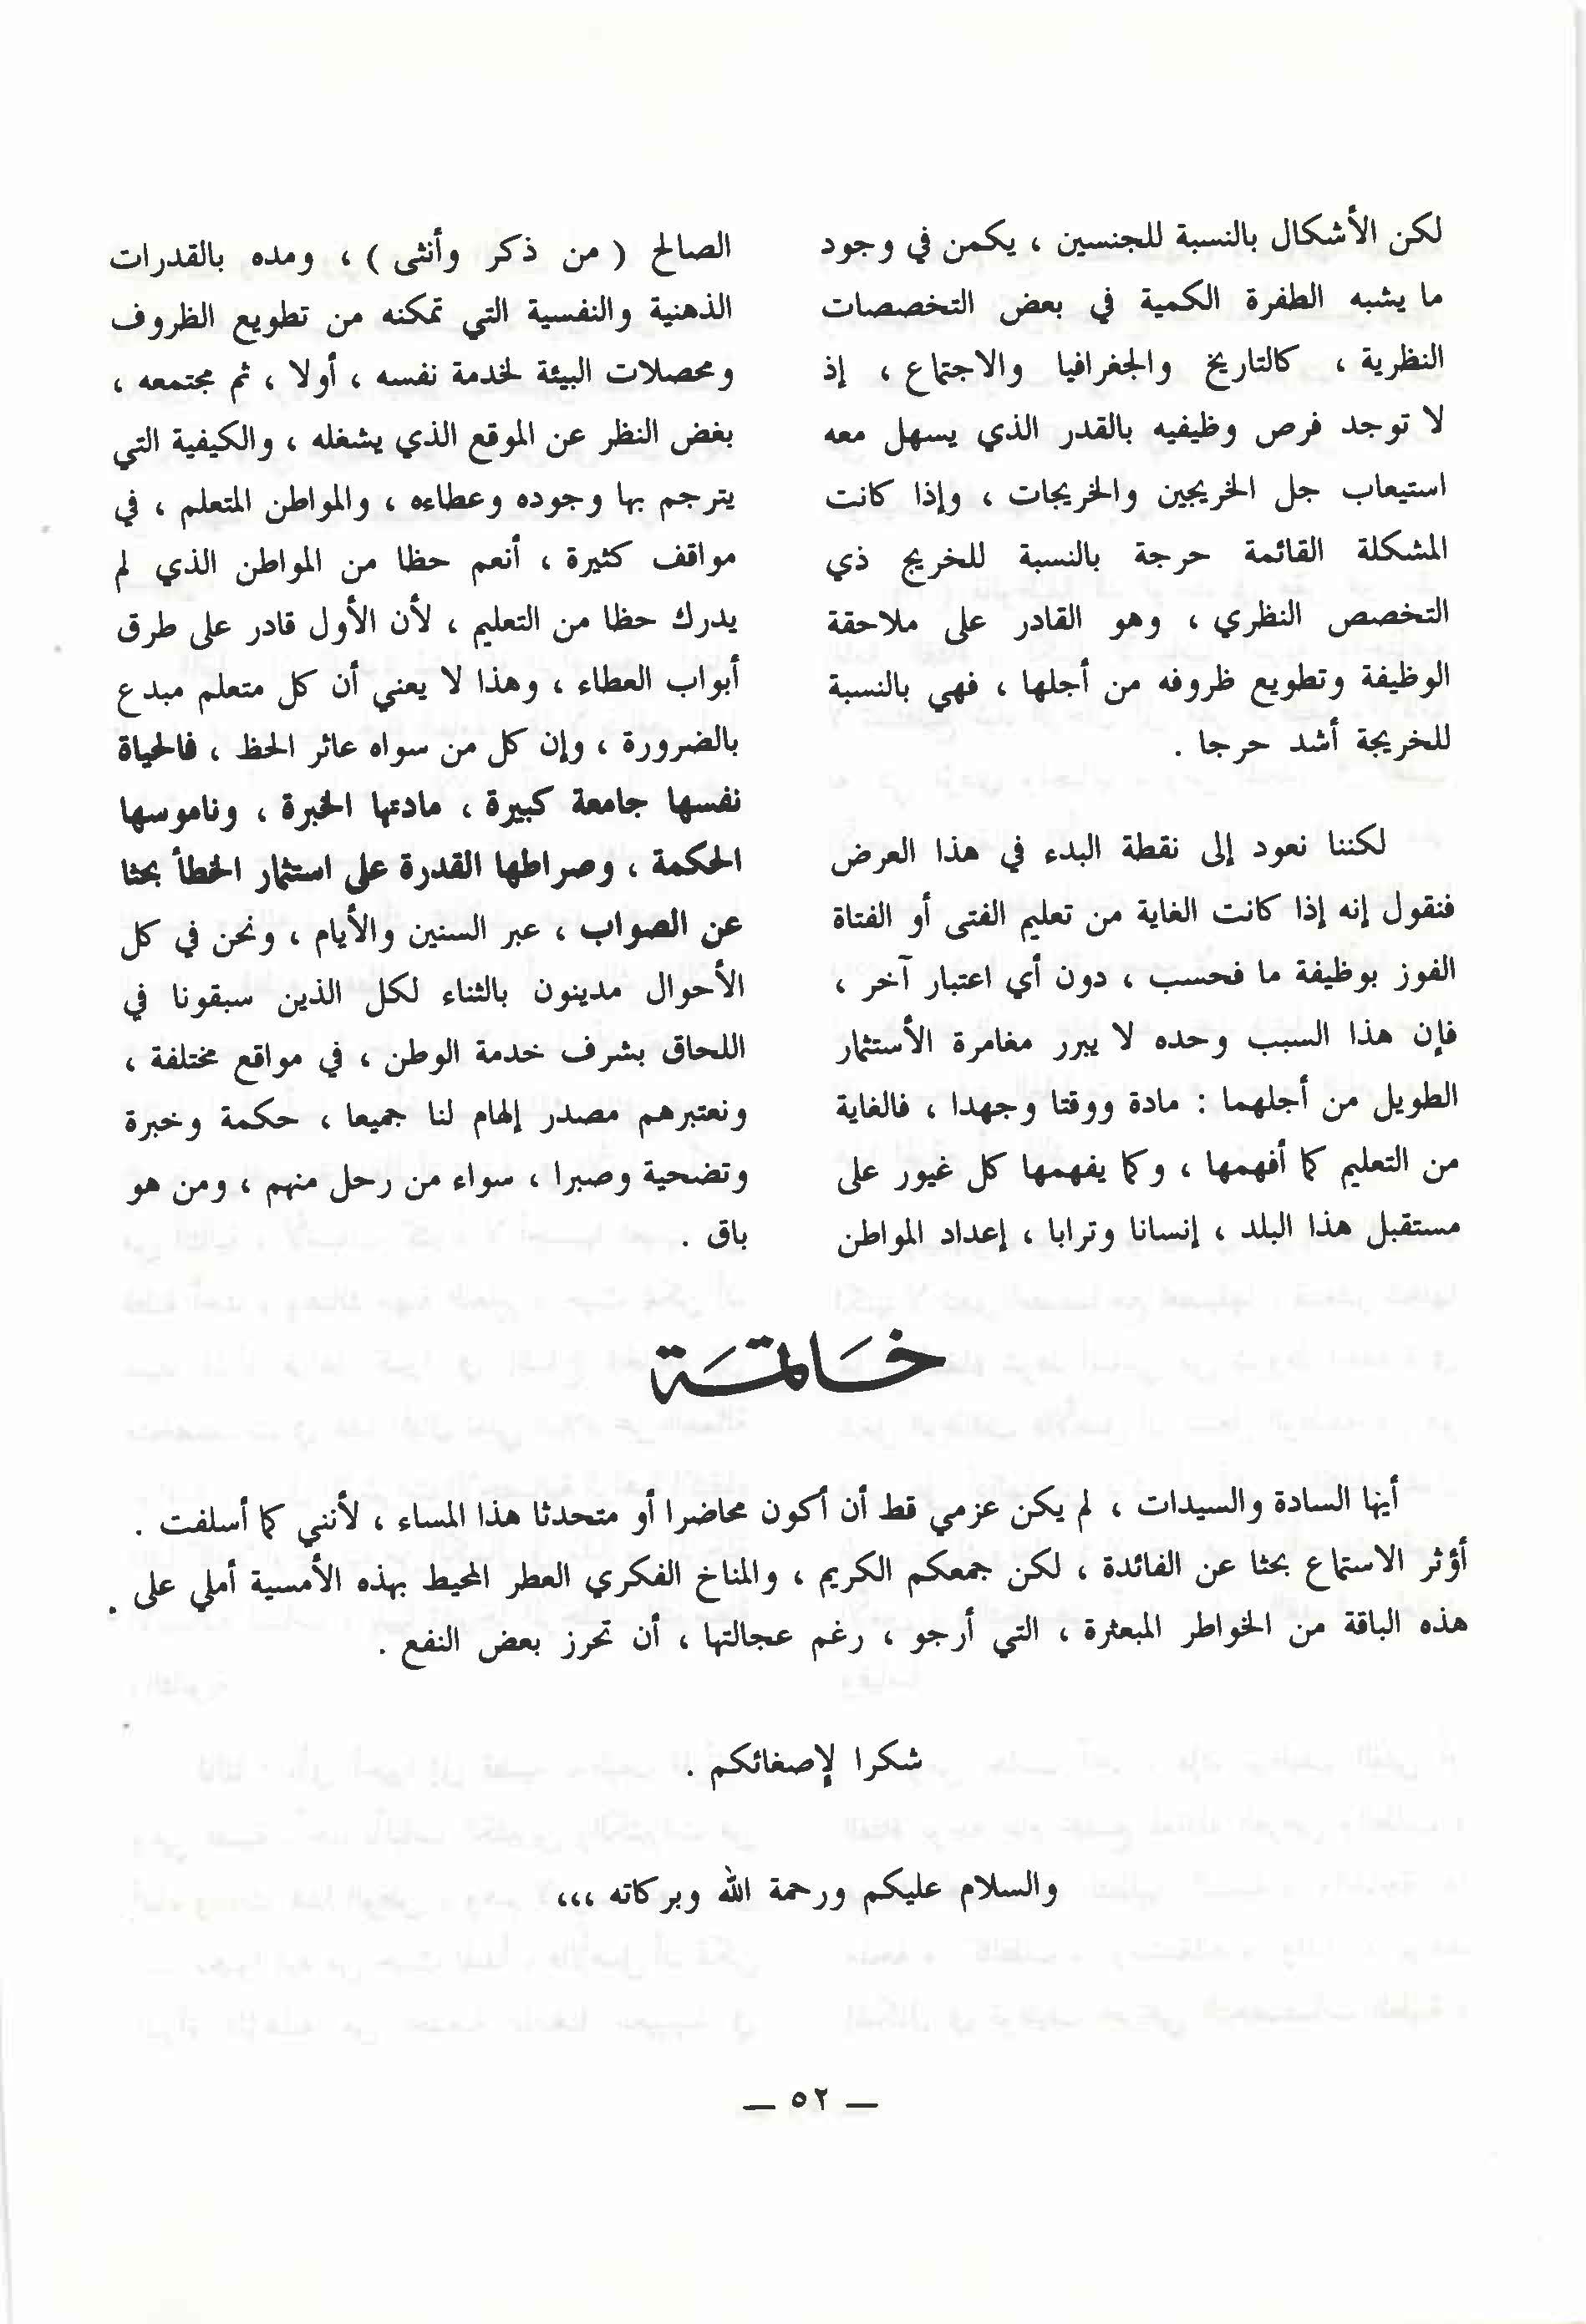 لكن الأشكال بالنسبة للجنسين ، يكمن في وجود
ما يشبه الطفرة الكمية في بعض التخصصات
النظرية ، كالتاريخ والجغرافيا والاجتماع ، إذ
لا توجد فرص وظيفيه بالقدر الذي يسهل معه
استيعاب جل الخريجين والخريجات ، وإذا كانت
المشكلة القائمة حرجة بالنسبة للخريج ذي
التخصص النظري ، وهو القادر على ملاحقة
الوظيفة وتطويع ظروفه من أجلها ، فهي بالنسبة
للخريجة أشد حرجا .
لكننا نعود إلى نقطة البدء في هذا العرض
فنقول إنه إذا كانت الغاية من تعليم الفتى أو الفتاة
الفوز بوظيفة ما فحسب ، دون أي اعتبار آخر ،
فإن هذا السبب وحده لا يبرر مغامرة الأستثمار
الطويل من أجلهما : مادة ووقتا وجهدا ، فالغاية
من التعليم كما أفهمها ، وكما يفهمها كل غيور على
مستقبل هذا البلد ، إنسانا وترابا ، إعداد المواطن
الصالح ( من ذكر وأنثى ) ، ومده بالقدرات
الذهنية والنفسية التي تمكنه من تطويع الظروف
ومحصلات البيئة لخدمة نفسه ، أولا ، ثم مجتمعه ،
بغض النظر عن الموقع الذي يشغله ، والكيفية التي
يترجم بها وجوده وعطاءه ، والمواطن المتعلم ، في
مواقف كثيرة ، أنعم حظا من المواطن الذي لم
يدرك حظا من التعليم ، لأن الأول قادر على طرق
أبواب العطاء ، وهذا لا يعني أن كل متعلم مبدع
بالضرورة ، وإن كل من سواه عاثر الحظ ، فالحياة
نفسها جامعة كبيرة ، مادتها الخبرة ، وناموسها
الحكمة ، وصراطها القدرة على استثمار الخطأ بحثا
عن الصواب ، عبر السنين والأيام ، ونحن في كل
الأحوال مدينون بالثناء لكل الذين سبقونا في
اللحاق بشرف خدمة الوطن ، في مواقع مختلفة ،
ونعتبرهم مصدر إلهام لنا جميعا ، حكمة وخبرة
وتضحية وصبرا ، سواء من رحل منهم ، ومن هو
باق .
خاتمة
أيها السادة والسيدات ، لم يكن عزمي قط أن أكون محاضرا أو متحدثا هذا المساء ، لأنني كما أسلفت .
أؤثر الاستماع بحثا عن الفائدة ، لكن جمعكم الكريم ، والمناخ الفكري العطر المحيط بهذه الأمسية أملي على
هذه الباقة من الخواطر المبعثرة ، التي أرجو ، رغم عجالتها ، أن تحرز بعض النفع .
شكرا لإصغائكم .
والسلام عليكم ورحمة الله وبركاته ،،،
— ٥٢ —